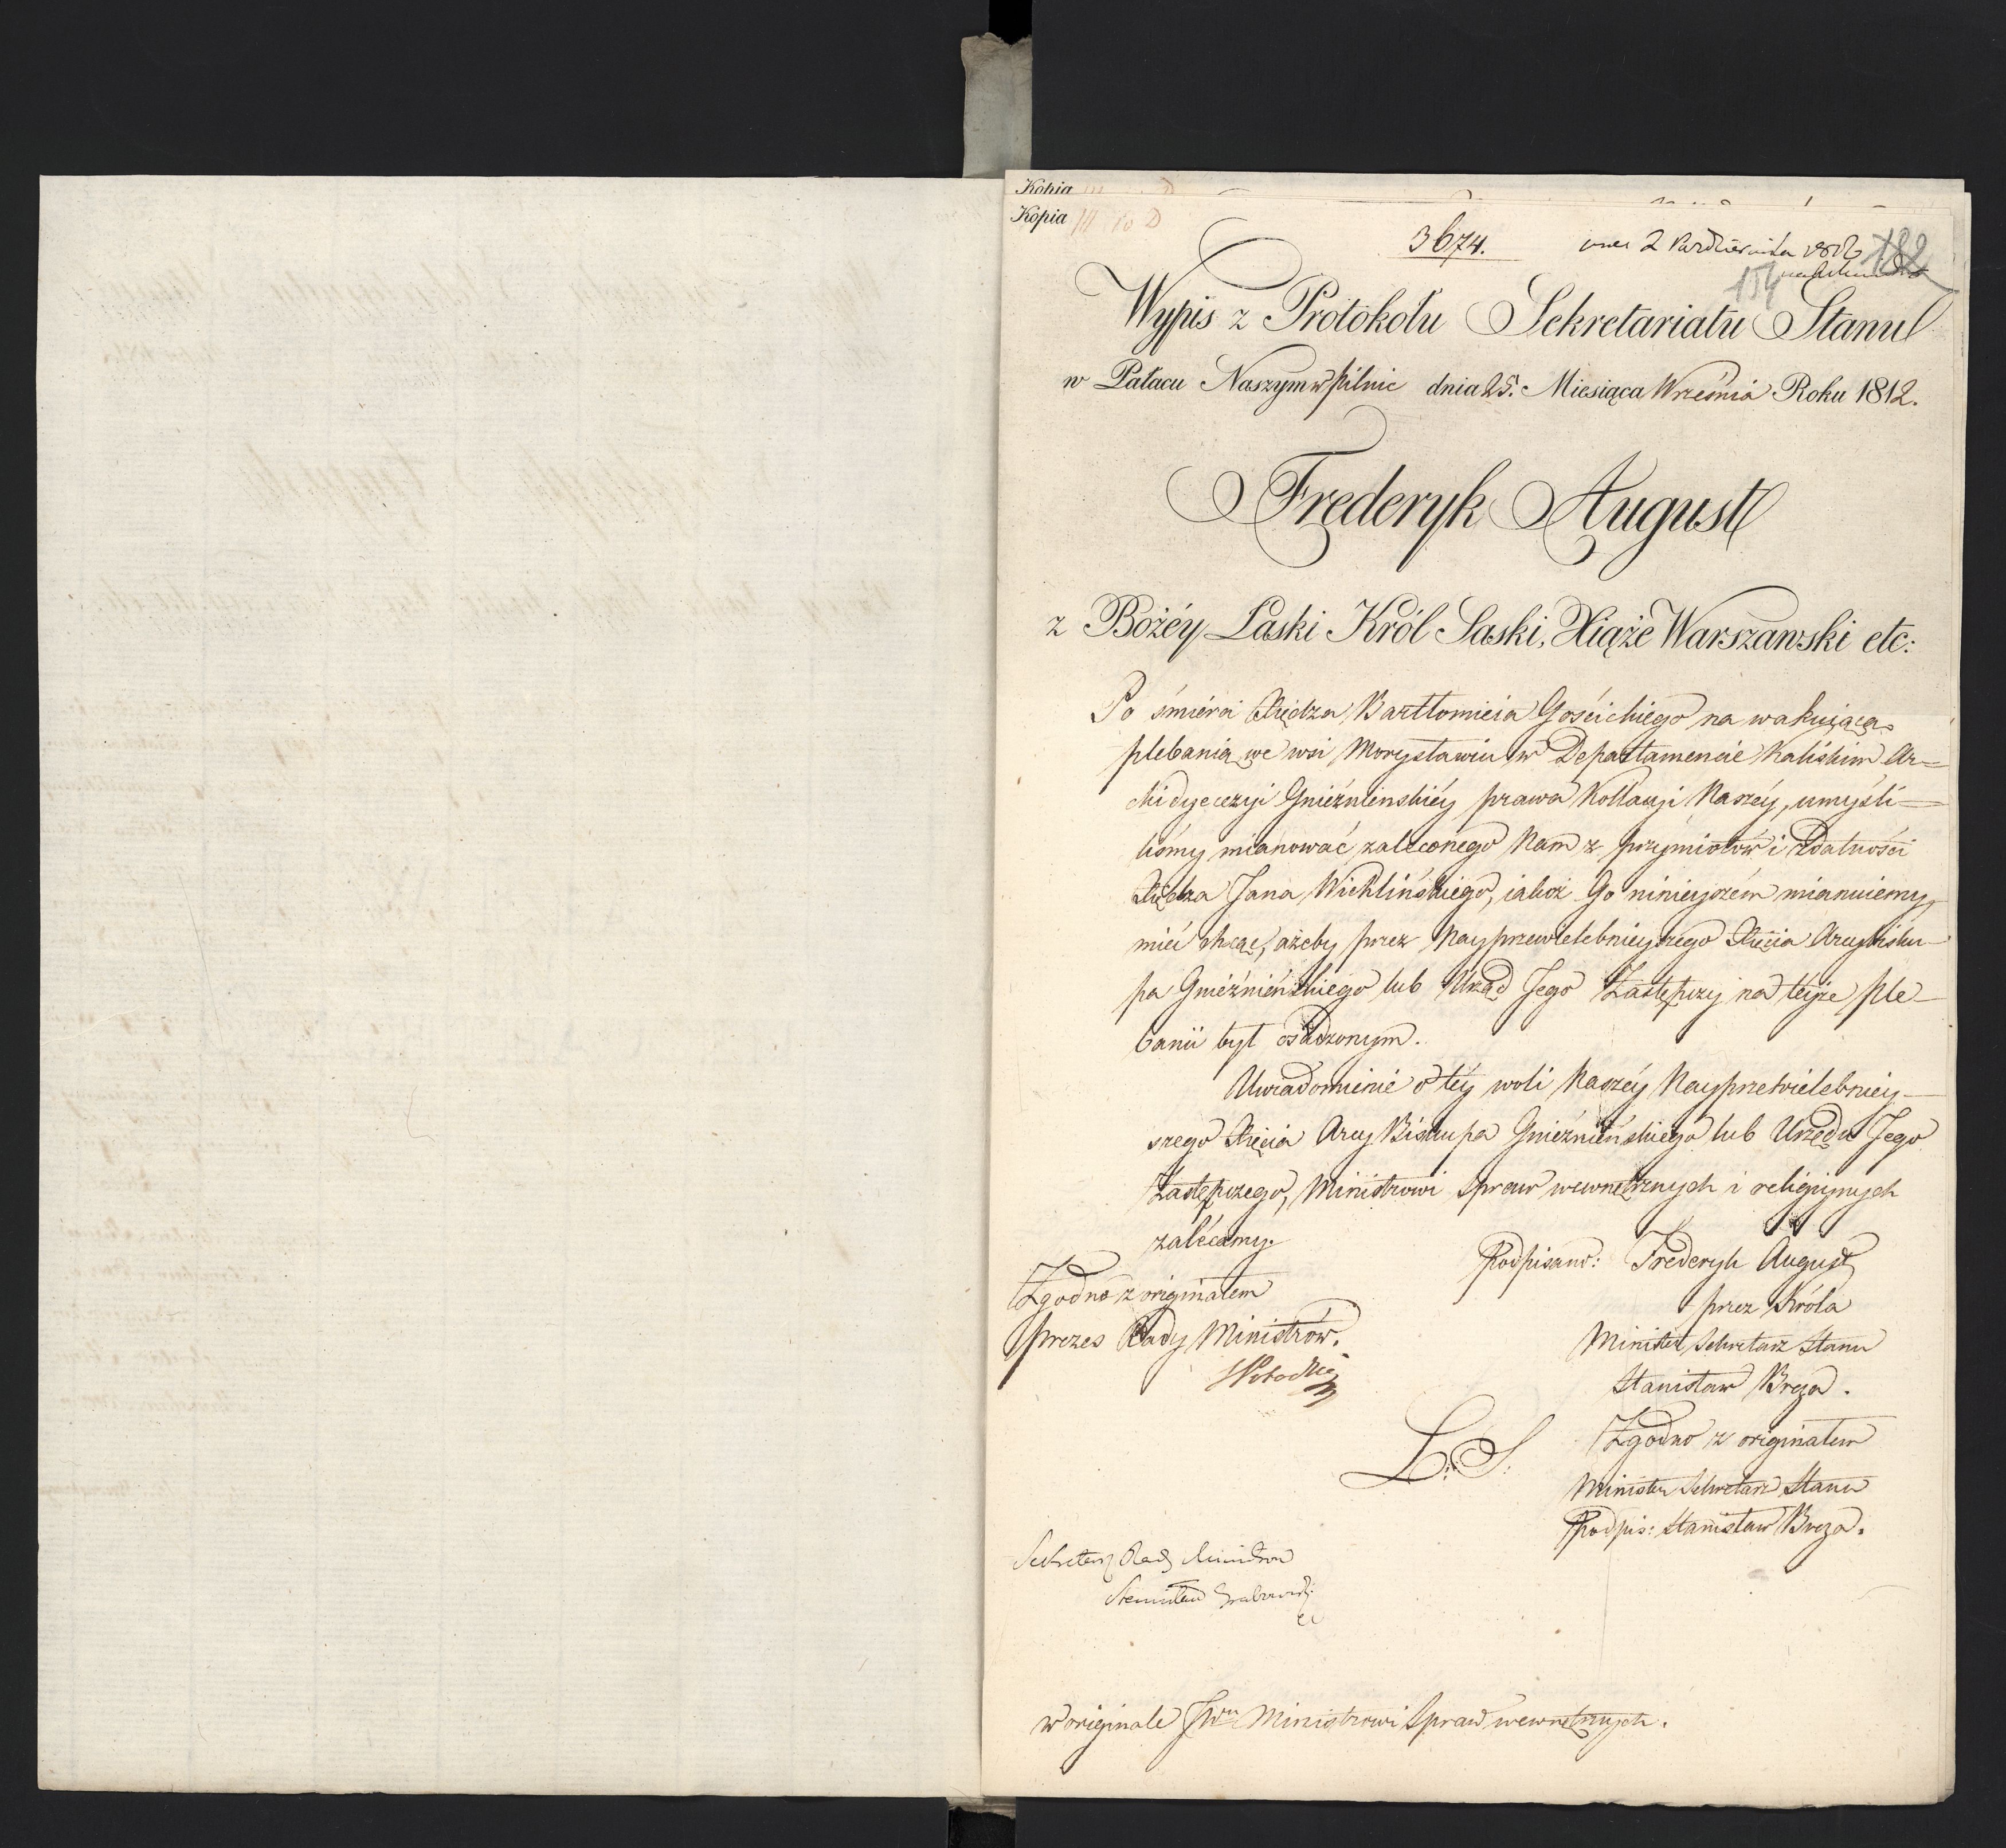 Kopia
Kopia
3674.
2 Października 1812
182
154
Wypis z Protokołu Sekretariatu Stanu
w Pałacu Naszym w Pilnic dnia 25. Miesiąca Września Roku 1812.
Frederyk August
z Bożéy Łaski Król Saski, Xiąże Warszawski etc:
Po śmierci Xiędza Bartłomieia Gościckiego na wakuiącą
plebanią we wsi Morysławiu w Departamencie Kaliskim Ar=
chidyecezyi Gnieźnieńskiéy prawa Kollacyi Naszéy, umyśli=
liśmy mianować zaleconego Nam z przymiotów i zdatności
Xiędza Jana Wichlińskiego, iakoż Go ninieyszém mianuiemy,
mieć chcąc, ażeby przez Nayprzewielebnieyszego Xięcia Arcybisku-
pa Gnieźnieńskiego lub Urząd Jego Zastępczy na téyże ple-
banii był osadzonym.
Uwiadomienie o téy woli Naszéy Nayprzewielebniey-
szego Xięcia Arcy Biskupa Gnieźnieńskiego lub Urzędu Jego
Zastępczego, Ministrowi Spraw wewnętrznych i religiynych
zalécamy.
Podpisano: Frederyk August
przez Króla
Minister Sekretarz Stanu
Stanisław Breza.
Zgodno z originałem
Prezes Rady Ministrów.
L. S.
Zgodno z originałem
Minister Sekretarz Stanu
Podpis: Stanisław Breza.
Sekretarz Rady Ministrów
Stanisław Grabowski
w originale JWu Ministrowi Spraw wewnętrznych.